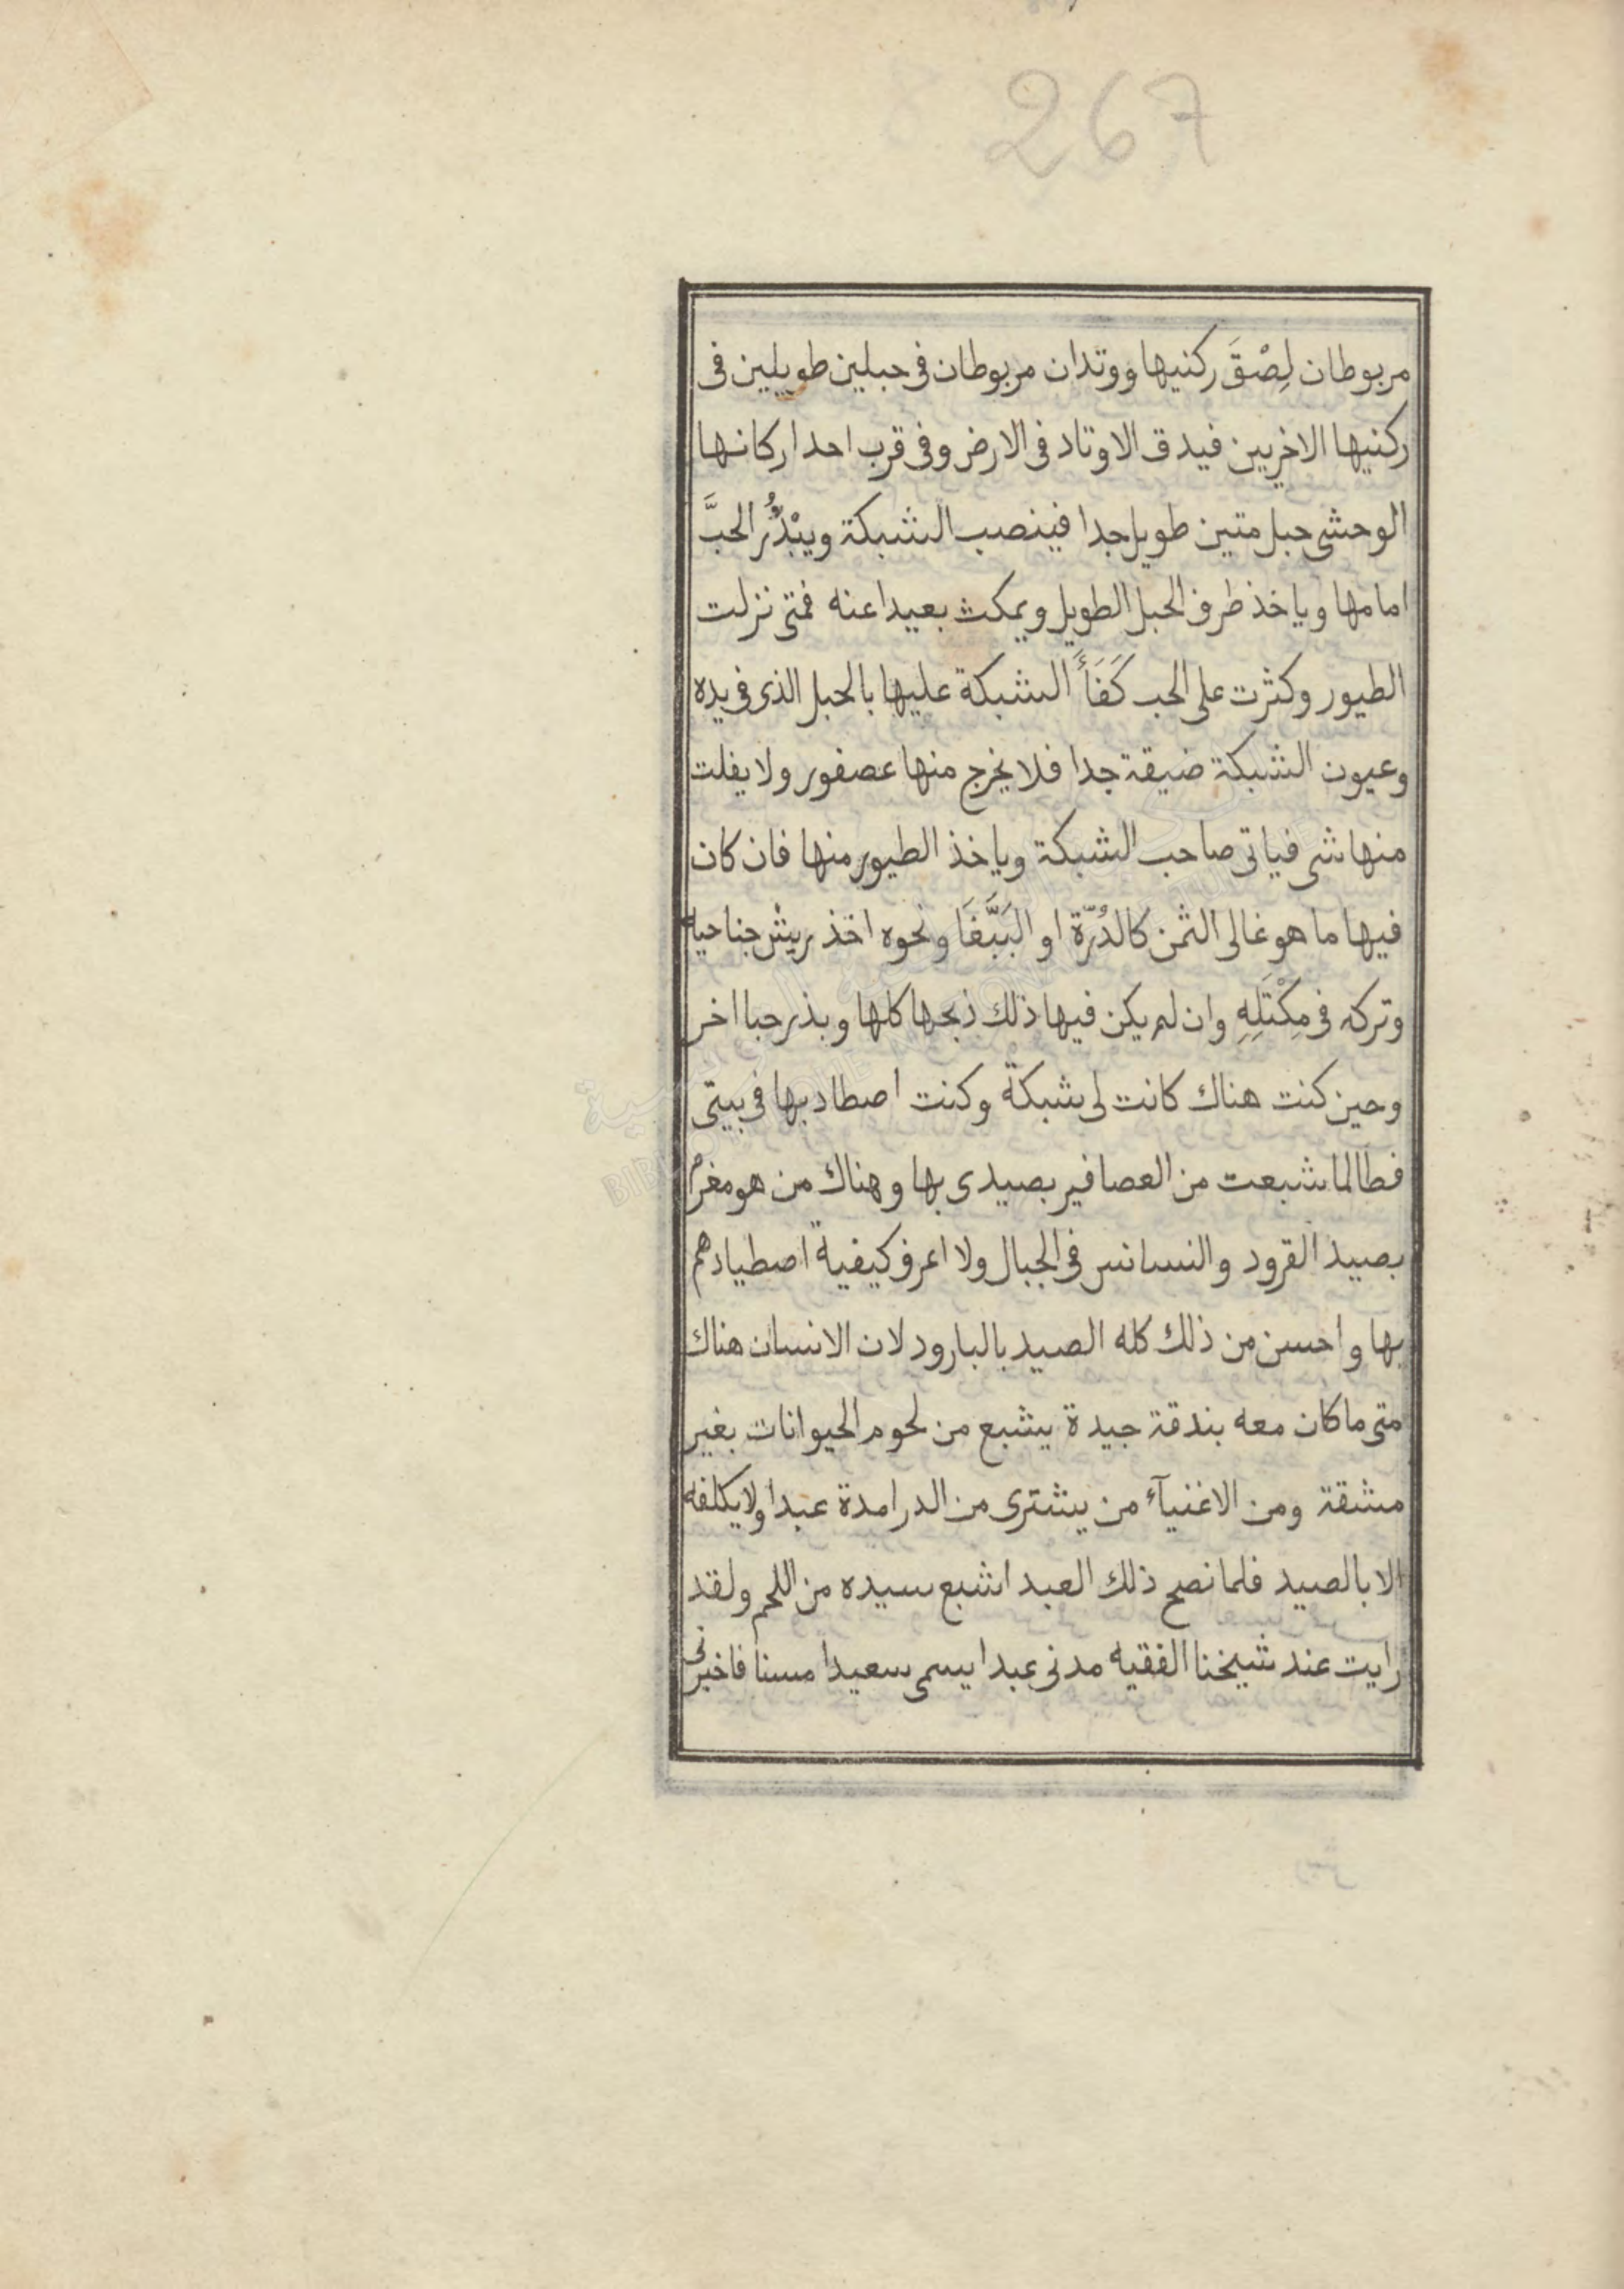 267
مربوطان لِصْقَ ركنيها ووتدان مربوطان فى حبلين طويلين فى
ركنيها الاخريين فيدق الاوتاد فى الارض وفى قرب احد اركانها
الوحشى حبل متين طويل جدا فينصب الشبكة ويبْذُر الحبَّ
امامها وياخذ طرف الحبل الطويل ويمكث بعيدا عنه فمتى نزلت
الطيور وكثرت على الحب كَفَأَ الشبكة عليها بالحبل الذى فى يده
وعيون الشبكة ضيقة جدا فلا يخرج منها عصفور ولا يفلت
منها شى فياتى صاحب الشبكة وياخذ الطيور منها فان كان
فيها ما هو غالى الثمن كالدُرّة او البَبَّغَا ونحوه اخذ ريش جناحيه
وتركه فى مِكْتَلِهِ وان لم يكن فيها ذلك ذبحها كلها وبذر حبا اخر
وحين كنت هناك كانت لى شبكة وكنت اصطاد بها فى بيتى
فطالما شبعت من العصافير بصيدى بها وهناك من هو مغرم
بصيد القرود والنسانس فى الجبال ولا اعرف كيفية اصطيادهم
بها واحسن من ذلك كله الصيد بالبارود لان الانسان هناك
متى ما كان معه بندقة جيدة يشبع من لحوم الحيوانات بغير
مشقة ومن الاغنيآء من يشترى من الدرامدة عبدا ولا يكلفه
الا بالصيد فلما نصح ذلك العبد اشبع سيده من اللحم ولقد
رايت عند شيخنا الفقيه مدنى عبدا يسمى سعيدا مسنا فاخبرنى